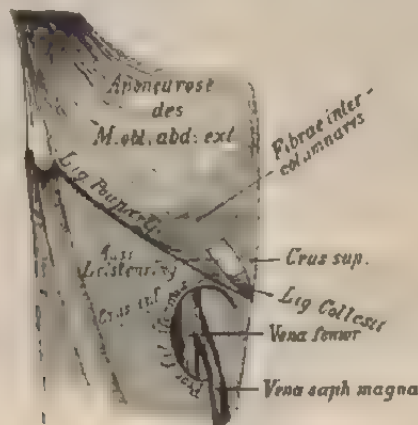 Aponeurose
des
M. obl. abd. ext
Fibrae inter-
columnares
Lig Pouparti
Äuss
Leistenring
Crus sup.
Crus inf
Lig Collesii
Vena femor
Vena saph magna